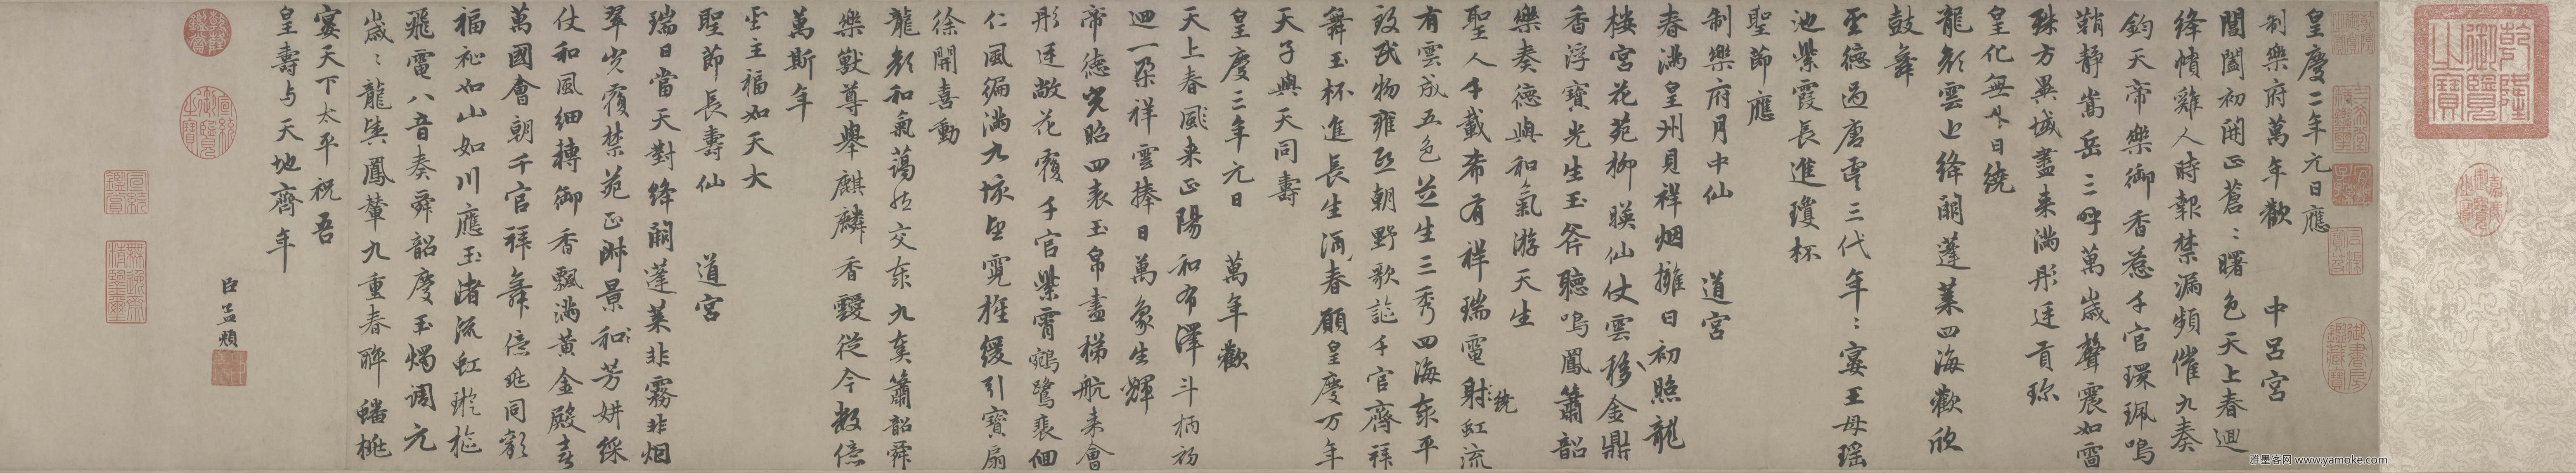 皇慶二年元日應
制樂府萬年歡　中呂宮
閶闔初開正蒼〻曙色天上春迴
絳幘雞人時報禁漏頻催九奏
鈞天帝樂御香惹千官環珮鳴
鞘靜嵩岳三呼萬歲聲震如雷
殊方異域盡来滿彤廷貢珎
皇化無外日繞
龍顏雲近絳闕蓬萊四海歡欣
鼓舞
聖德過唐虞三代年〻宴王母瑤
池紫霞長進瓊杯
聖節應
制樂府月中仙　道宮
春滿皇州見祥烟擁日初照龍
樓宮花苑柳暎仙仗雲移金鼎
香浮寶光生玉斧聽鳴鳳簫韶
樂奏德與和氣游天生
聖人千載希有祥瑞電射虹流
繞
有雲成五色芝生三秀四海泰平
致民物雍熙朝野歌謳千官齊拜
舞玉杯進長生酒春願皇慶万年
天子與天同壽
皇慶三年元日　萬年歡
天上春颩来正陽和布澤斗柄初
迴一朶祥雲捧日萬象生輝
帝德光昭四表玉帛盡梯航来會
彤廷敞花覆千官紫霄鵷鷺裵佪
仁風徧滿九垓望霓旌緩引寶扇
徐開喜動
龍顏和氣藹然交泰九奏簫韶舜
樂獸尊舉麒麟香靉從今數億
萬斯年
聖主福如天大
聖節長壽仙　道宮
瑞日當天對絳闕蓬萊非霧非烟
翠光覆禁苑正淑景和芳妍綵
仗和風細轉御香飄滿黃金殿喜
萬國會朝千官拜舞億兆同歡
福祉如山如川應玉渚流虹璇樞
飛電八音奏舜韶慶玉燭调元
歲〻龍輿鳳輦九重春醉蟠桃
宴天下太平祝吾
皇壽与天地齊年
臣孟頫
乾隆御覽之寶
雅墨客网 www.yamoke.com